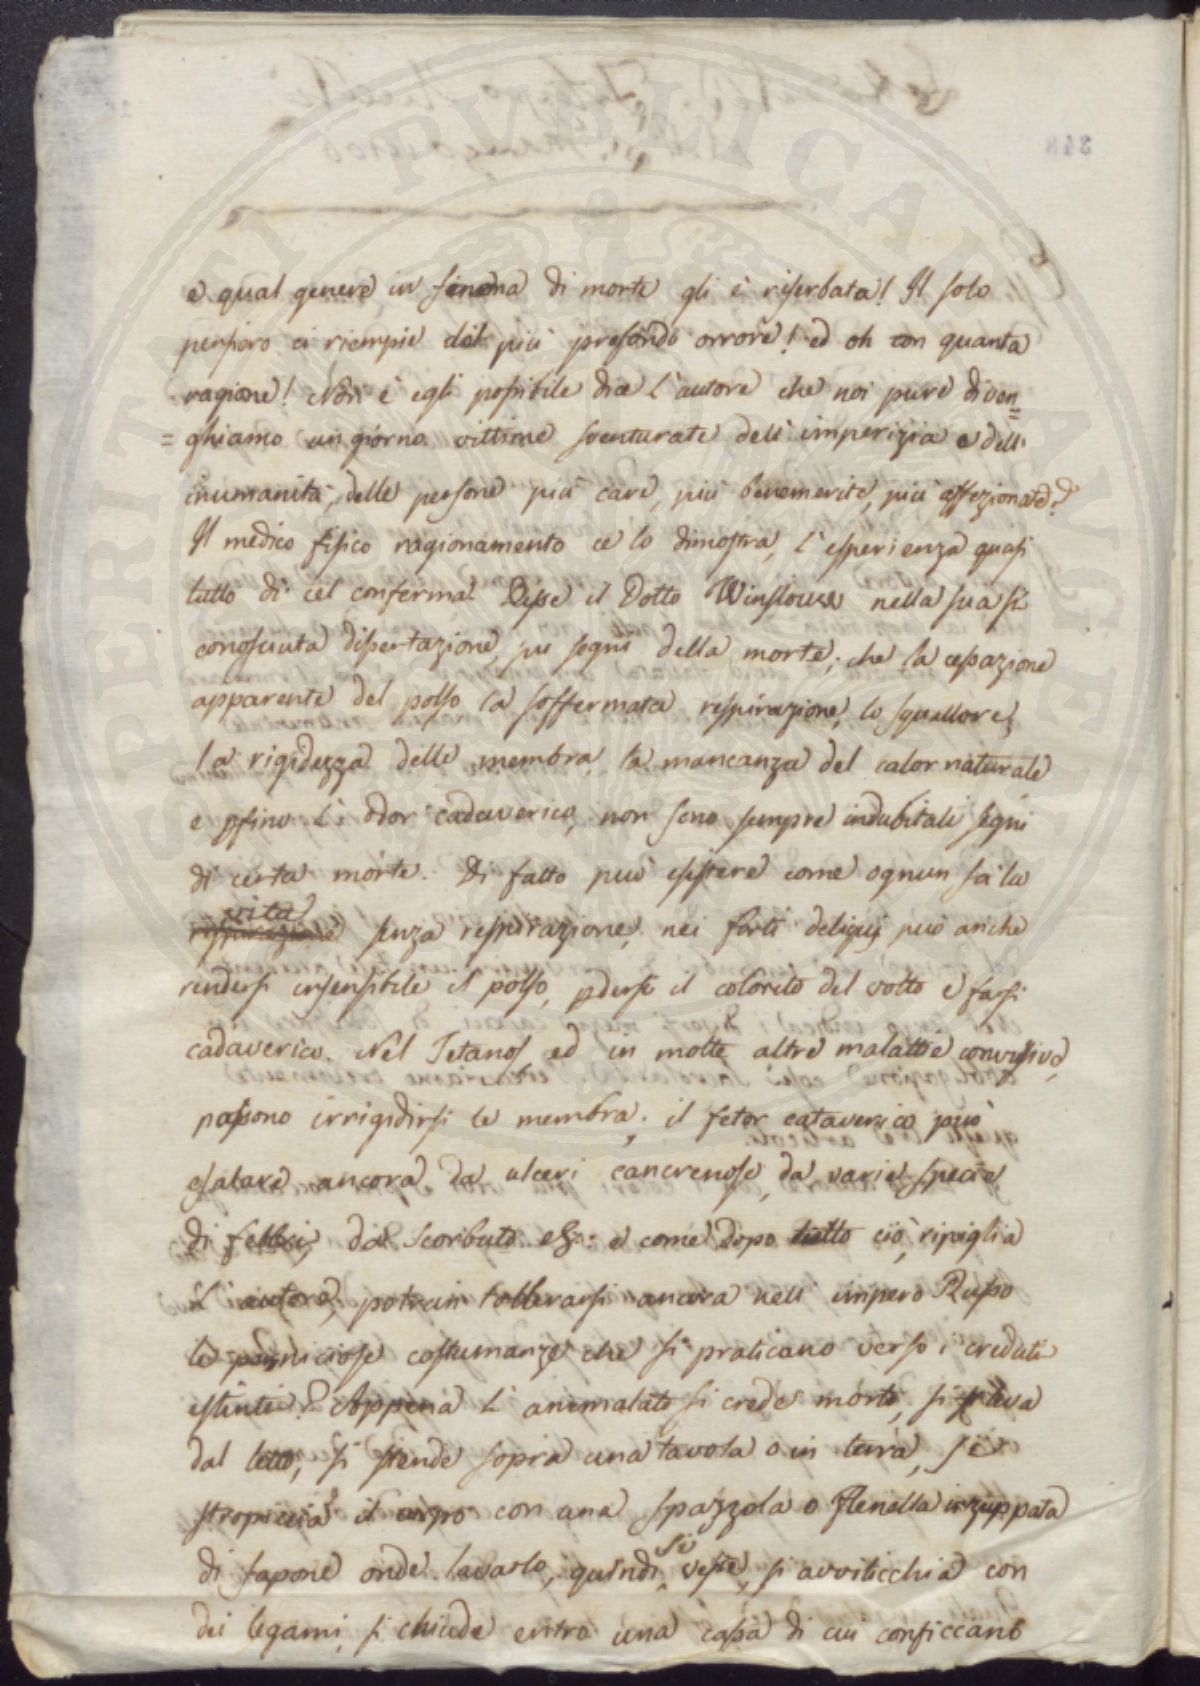 e qual genere in di morte gli è riserbata! Il solo
pensiero ci riempie del più profondo orrore! ed oh con quanta
ragione! Non è egli possibile dice l'autore che noi pure diven=
=ghiamo un giorno vittime sventurate dell'imperizia e dell'
inumanità, delle persone più care, più benemerite, più affezionate?
Il medico fisico ragionamento ce lo dimostra, l'esperienza quasi
tutto dì cel conferma. Disse il Dotto Winslow nella sua sì
conosciuta dissertazione, su segni della morte; che la cessazione
apparente del polso la soffermata respirazione, lo squallore,
la rigidezza delle membra, la mancanza del calor naturale
e pfino l'odor cadaverico, non sono sempre indubitali segni
di certa morte. Di fatto può esistere come ognun sa la
vita
respirazione senza respirazione, nei forti deliquj può anche
rendersi insensibile il polso, pdersi il colorito del volto e farsi
cadaverico. Nel Tetanos, ed in molte altre malattie convulsive,
possono irrigidirsi le membra; il fetor cataverico può
esalare ancora da ulceri cancrenose, da varie specie
di febbri, da Scorbuto &c: e come dopo tutto ciò, ripiglia
l'autore, potran tollerarsi ancora nell'impero Russo
le perniciose costumanze che si praticano verso i creduti
estinti? Appena l'ammalato si crede morto, si leva
dal letto, si stende sopra una tavola o in terra, si
stropiccia il corpo con una spazzola o flenella inzuppata
di sapone onde lavarlo, quindi,
si
veste, si avviticchia con
dei legami, si chiude entro una cassa di cui conficcano
348